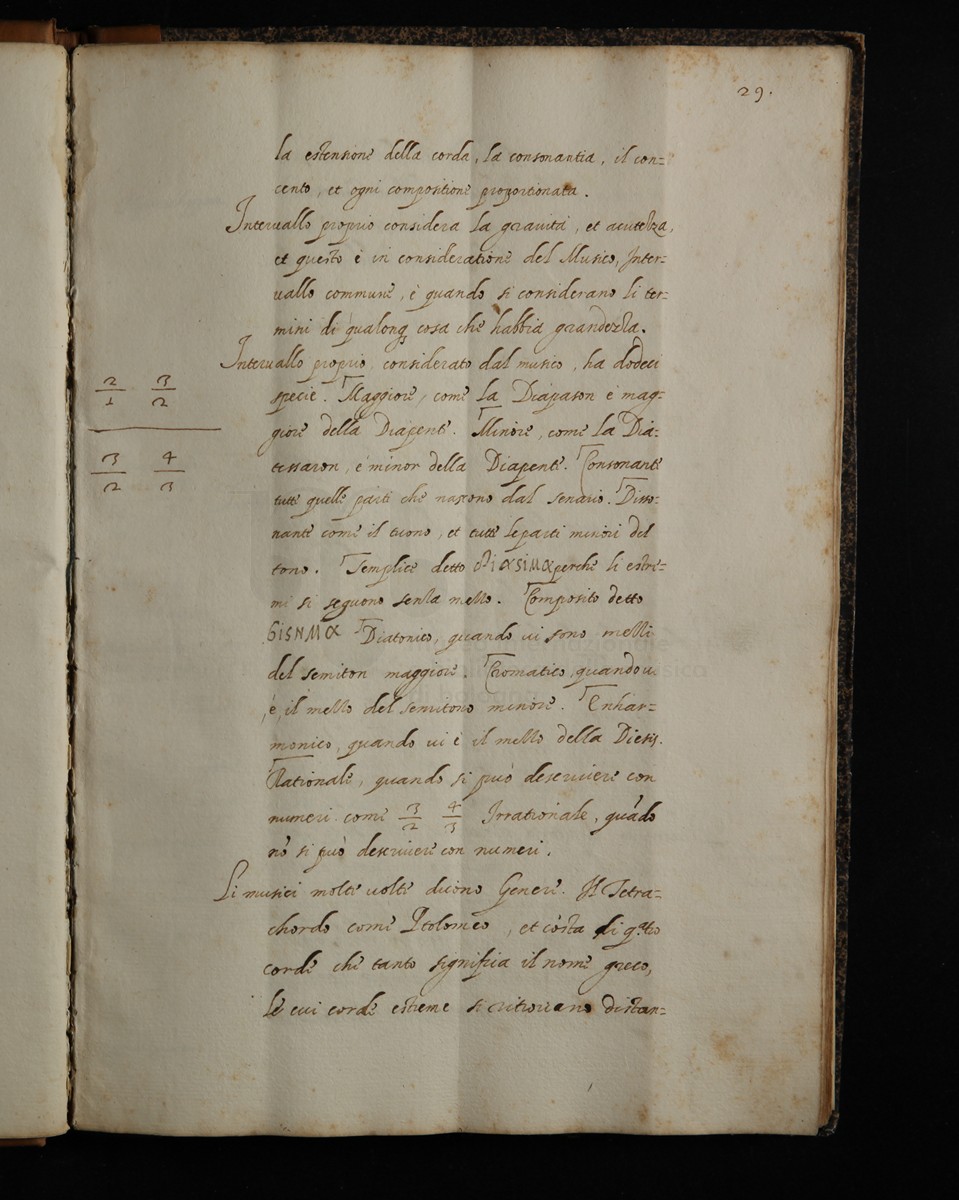 29.
la estensione della corda, la consonantia, il con=
cento, et ogni compositione proportionata.
Interuallo proprio considera la grauità, et acutezza,
et questo è in consideratione del Musico, Inter=
uallo commune, è quando si considerano li ter=
mini di qualonq cosa che habbia grandezza.
Interuallo proprio, considerato dal musico, ha dodeci
specie. Maggiore, come la Diapason è mag=
giore della Diapente. Minore, come la Dia=
tessaron, è minor della Diapente. Consonante
tutte quelle parti che nascono dal senario. Disso=
nante come il tuono, et tutte le parti minori del
tono. Semplice detto διαsiμα perche li estre=
mi si seguono senza mezzo. Composito detto
sisημα Diatonico, quando ui sono mezzi
del semiton maggiore. Cromatico, quando u
è, il mezzo del semitono minore. Enhar=
monico, quando ui è il mezzo della Diesis.
Rationale, quando si può descriuere con
numeri come 3/2 4/3 Irrationale, quãdo
nõ si può descriuere con numeri.
Li musici molte uolte dicono Genere. Il Tetra=
chordo come Ptolomeo, et cõsta di q.tto
corde che tanto significa il nome greco,
le cui corde estreme si ritrouano distan=
2/1 3/2
3/2 4/3